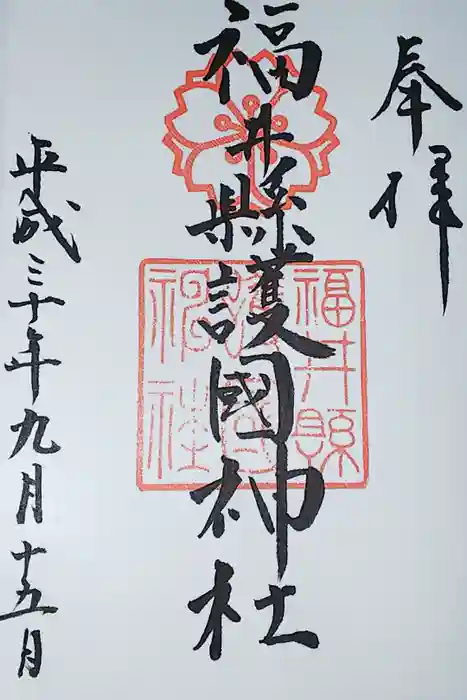 奉拝
福井縣護國神社
福井縣
護國
神社
平成三十年九月十五月